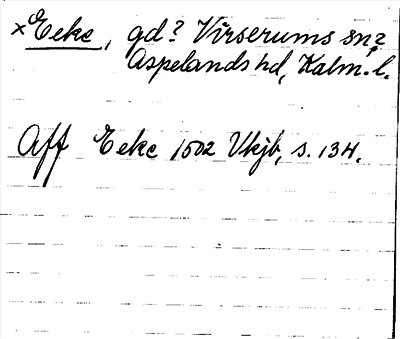 ×Eeke, gd? Virserums sn?
Aspelands hd, Kalm. l.
Aff Eeke 1502 Vkjb, s. 134.